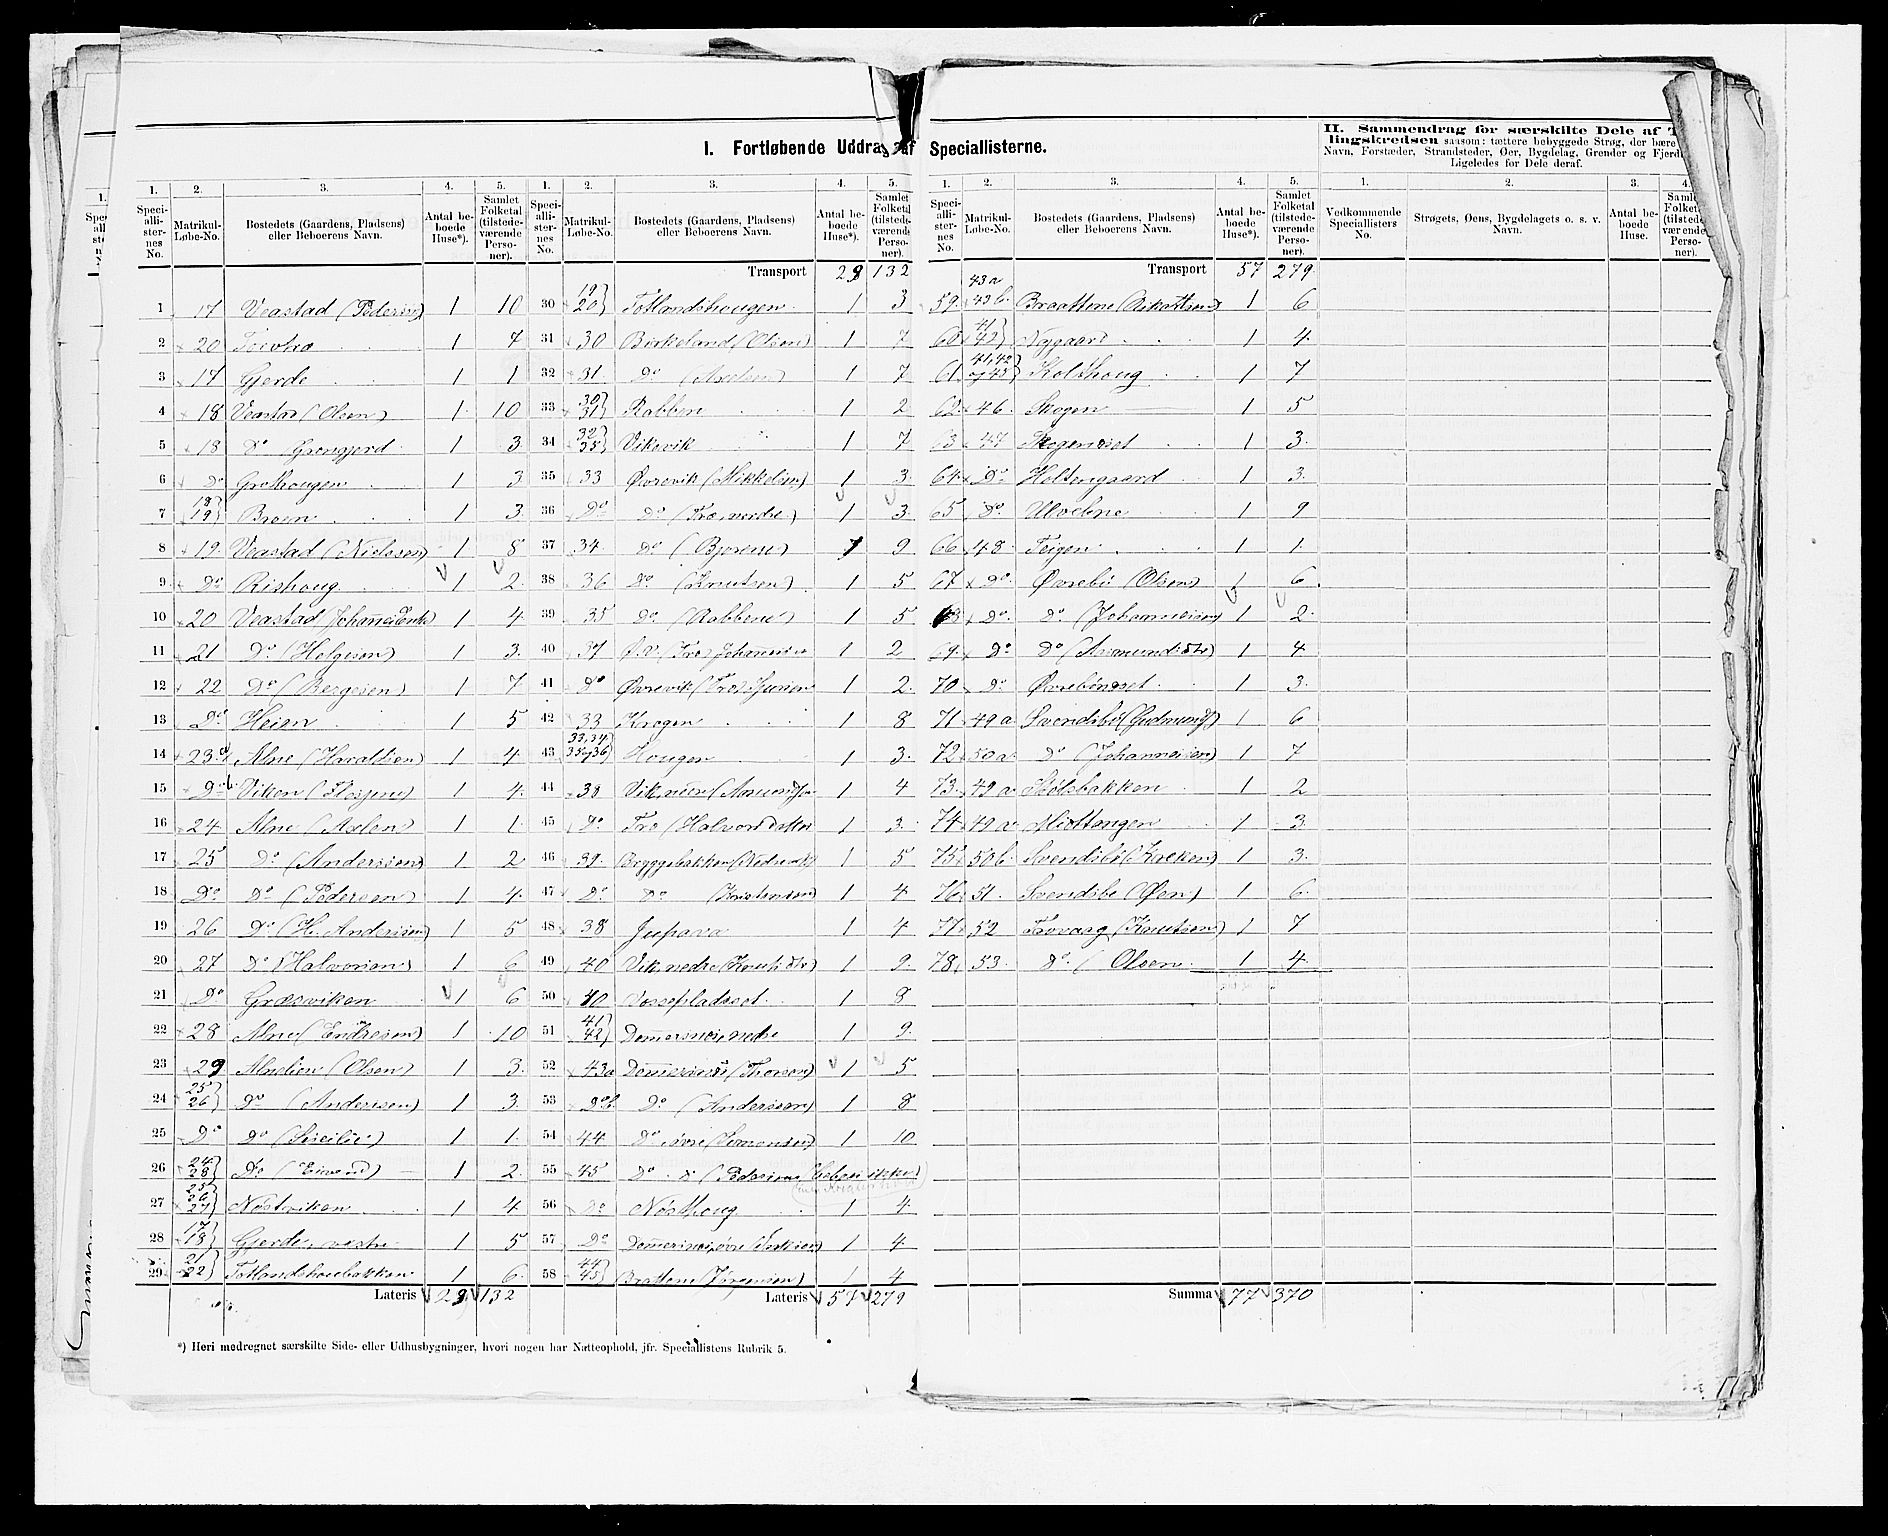 I. Fortløbende Uddrag af Speciallisterne.
II. Sammendrag for særskilte Dele af
lingskredsen saasom: tættere bebyggede Strøg, der bære
Navn, Forstæder, Strandsteder, Øer, Bygdelag, Grender og Fjerd
Ligeledes for Dele deraf.
1. 2. 3. 4. 5. 1. 2. 3. 4. 5.
Speciallisternes No. Matrikul-Løbe-No. Bostedets (Gaardens, Pladsens) eller Beboerens Navn. Antal beboede Huse*). Samlet Folketal (tilstedeværende Personer).
Transport 29 132
1 17 Veastad (Pedersen) 1 10
2 20 1 7
3 17 Gjerde 1 1
4 18 Veastad (Olsen) 1 10
5 18 Do 1 3
6 Do Grothougen 1 3
7 18 19 Broen 1 3
8 19 Veastad (Nielssen) 1 8
9 Do Rishoug 1 2
10 20 Veastad 1 4
11 21 Do (Helgesen) 1 3
12 22 Do (Bergesen) 1 7
13 Do Heien 1 5
14 23a Alne (Haraldsen) 1 4
15 Do b Viken 1 4
16 24 Alne (Axelsen) 1 1
17 25 Do (Anderssen) 1 2
18 Do Do (Pedersen) 1 4
19 26 Do (H. Anderssen) 1 5
20 27 Do (Halvorsen) 1 6
21 Do Græsviken 1 6
22 28 Alne (Endresen) 1 10
23 29 Alnelien (Olsen) 1 3
24 25 26 Do (Anderssen) 1 3
25 Do Do 1 1
26 Do 1 2
27 25 26 27 Nøstviken 1 4
28 17 18 Gjerde, vestre 1 5
29 21 22 Totlandshoubakken 1 6
Lateris 29 132
30 19 20 Totlandshougen 1 3
31 30 Birkeland (Olsen) 1 7
32 31 Do (Axelsen) 1 7
33 30 31 Rabben 1 2
34 32 35 Viksvik 1 7
35 33 Øvrevik (Mikkelsen) 1 3
36 Do Do 1 3
37 34 Do 1 9
38 36 Do (Knutsen) 1 5
39 35 Do (Rabbene) 1 5
40 37 1 2
41 Do Øvrevik 1 2
42 33 Krogen 1 8
43 33,34 35 og 36 Hougen 1 3
44 38 Vik, nedre 1 4
45 Do 1 3
46 39 Bryggebakken 1 5
47 Do Do (Kristensen) 1 4
48 38 Jupava 1 4
49 40 Vik, nedre 1 9
50 40 Vossepladset 1 8
51 41 42 Dommersnes, nedre 1 9
52 43a Dommersnes (Thorsen) 1 5
53 Do b Do (Anderssen) 1 8
54 44 Do øvre (Simonsen) 1 10
55 45 Do
56 Do Nøsthoug 1 4
57 Do Dommersnes, øvre 1 4
58 44 45 Brattene (Jørgensen) 1 4
Lateris 57 279
Transport 57 279
59 43a 43b Braattene 1 6
60 41 42 Nygaard 1 4
61 41,42 og 45 Kolshoug 1 7
62 46 Skogen 1 5
63 47 Skogenæset 1 3
64 Do Holtengaard 1 3
65 Do 1 9
66 48 Teigen 1 1
67 Do Øvrebø (Olsen) 1 6
68 Do Do (Johannessen) 1 2
69 Do Do 1 4
70 Do Øvrebønæset 1 3
71 49a Svendsbø 1 6
72 50a Do (Johannessen) 1 7
73 49a Stølsbakken 1 2
74 49a Midttangen 1 3
75 50b Svendsbø 1 3
76 51 Svendsbø (Øen) 1 6
77 52 Trovaag (Knutsen) 1 7
78 53 Do (Olsen 1 4
Summa 77 370
1. 2. 3. 4.
Vedkommende Speciallisters No. Strøgets, Øens, Bygdelagets o. s. v. Navn. Antal beboede Huse.
*) Heri medregnet særskilte Side- eller Udhusbygninger, hvori nogen har Natteophold, jfr. Speciallistens Rubrik 5.